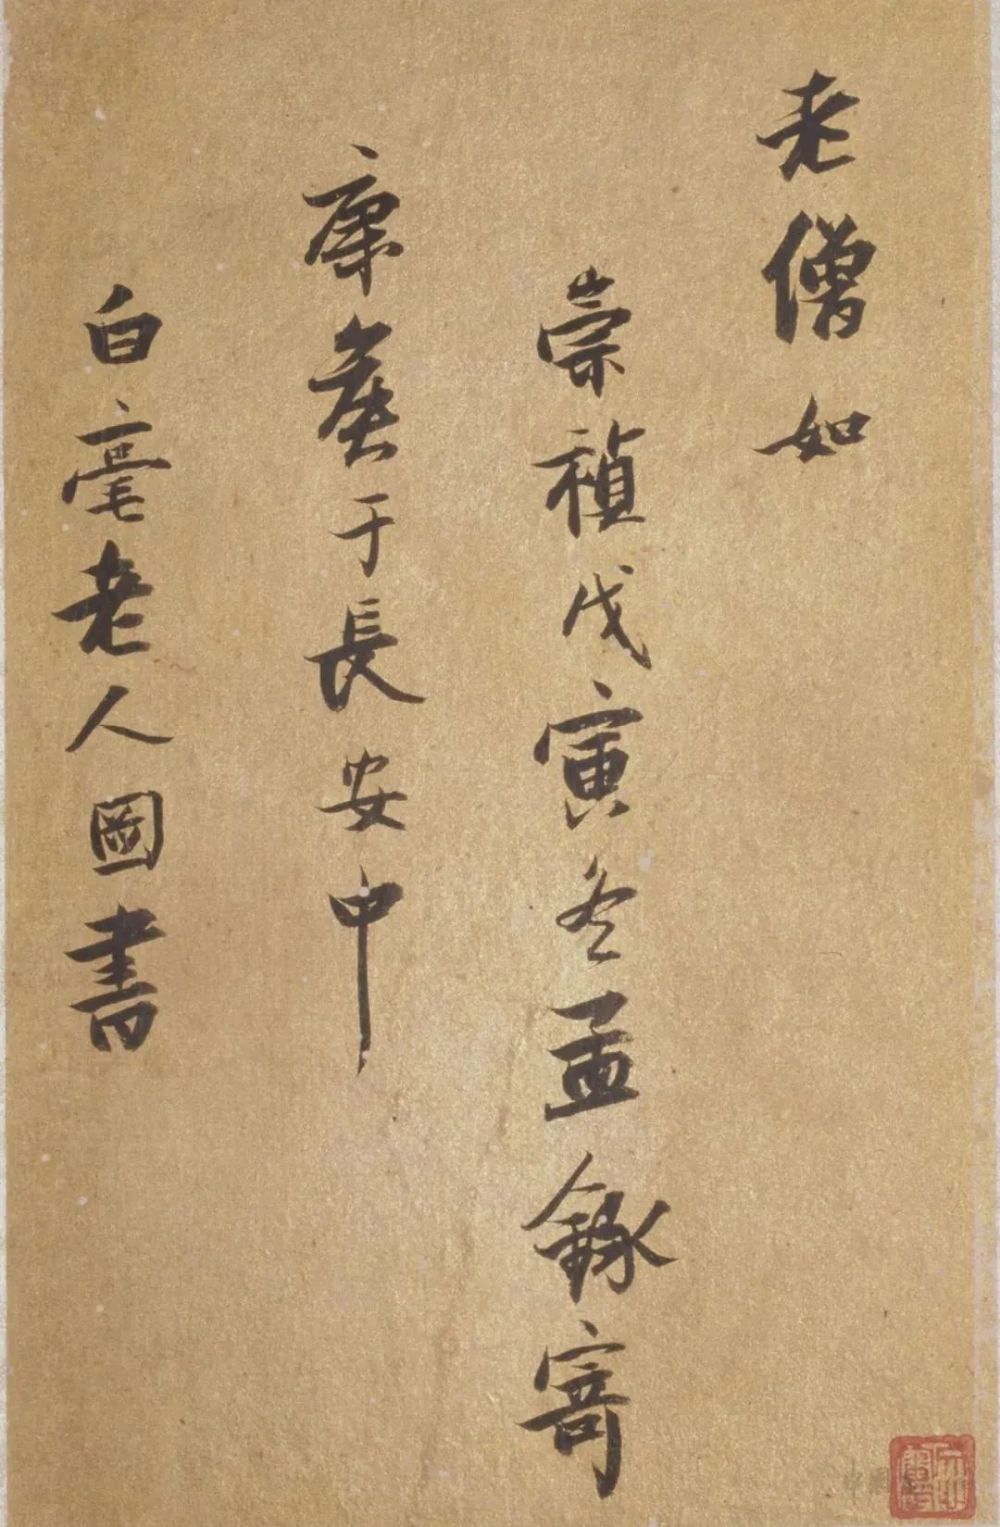 老僧如
崇禎戊寅冬孟錄寄
康于長安中
白毫老人圖書